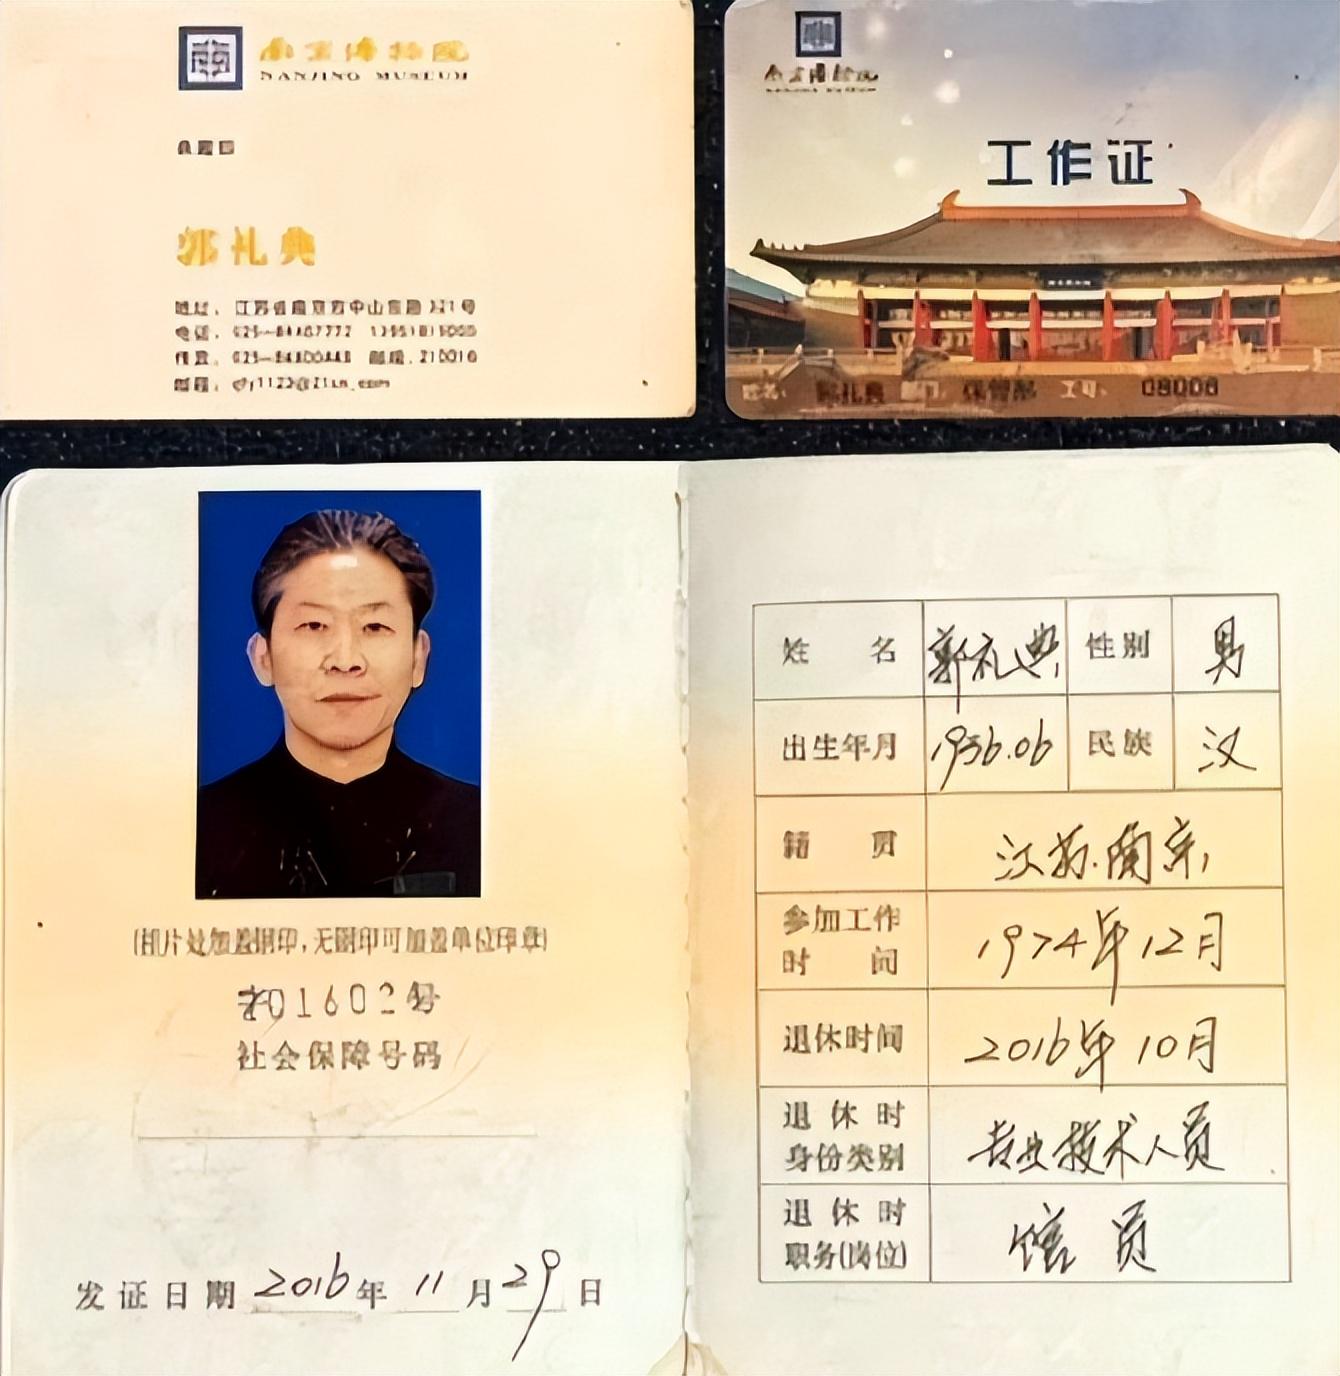 南京博物院
NANJING MUSEUM
郭礼典
地址：江苏省南京市中山东路321号
电话：
传真： 邮编：210016
邮箱：
南京博物院
工作证
姓名： 郭礼典 部门： 保管部 工号： 08008
(相片处加盖钢印，无钢印可加盖单位印章)
201602号
社会保障号码
发证日期 2016年 11月29日
姓名 郭礼典 性别 男
出生年月 1956.06 民族 汉
籍贯 江苏.南京
参加工作
时间 1974年12月
退休时间 2016年10月
退休时
身份类别 专业技术人员
退休时
职务(岗位) 馆员